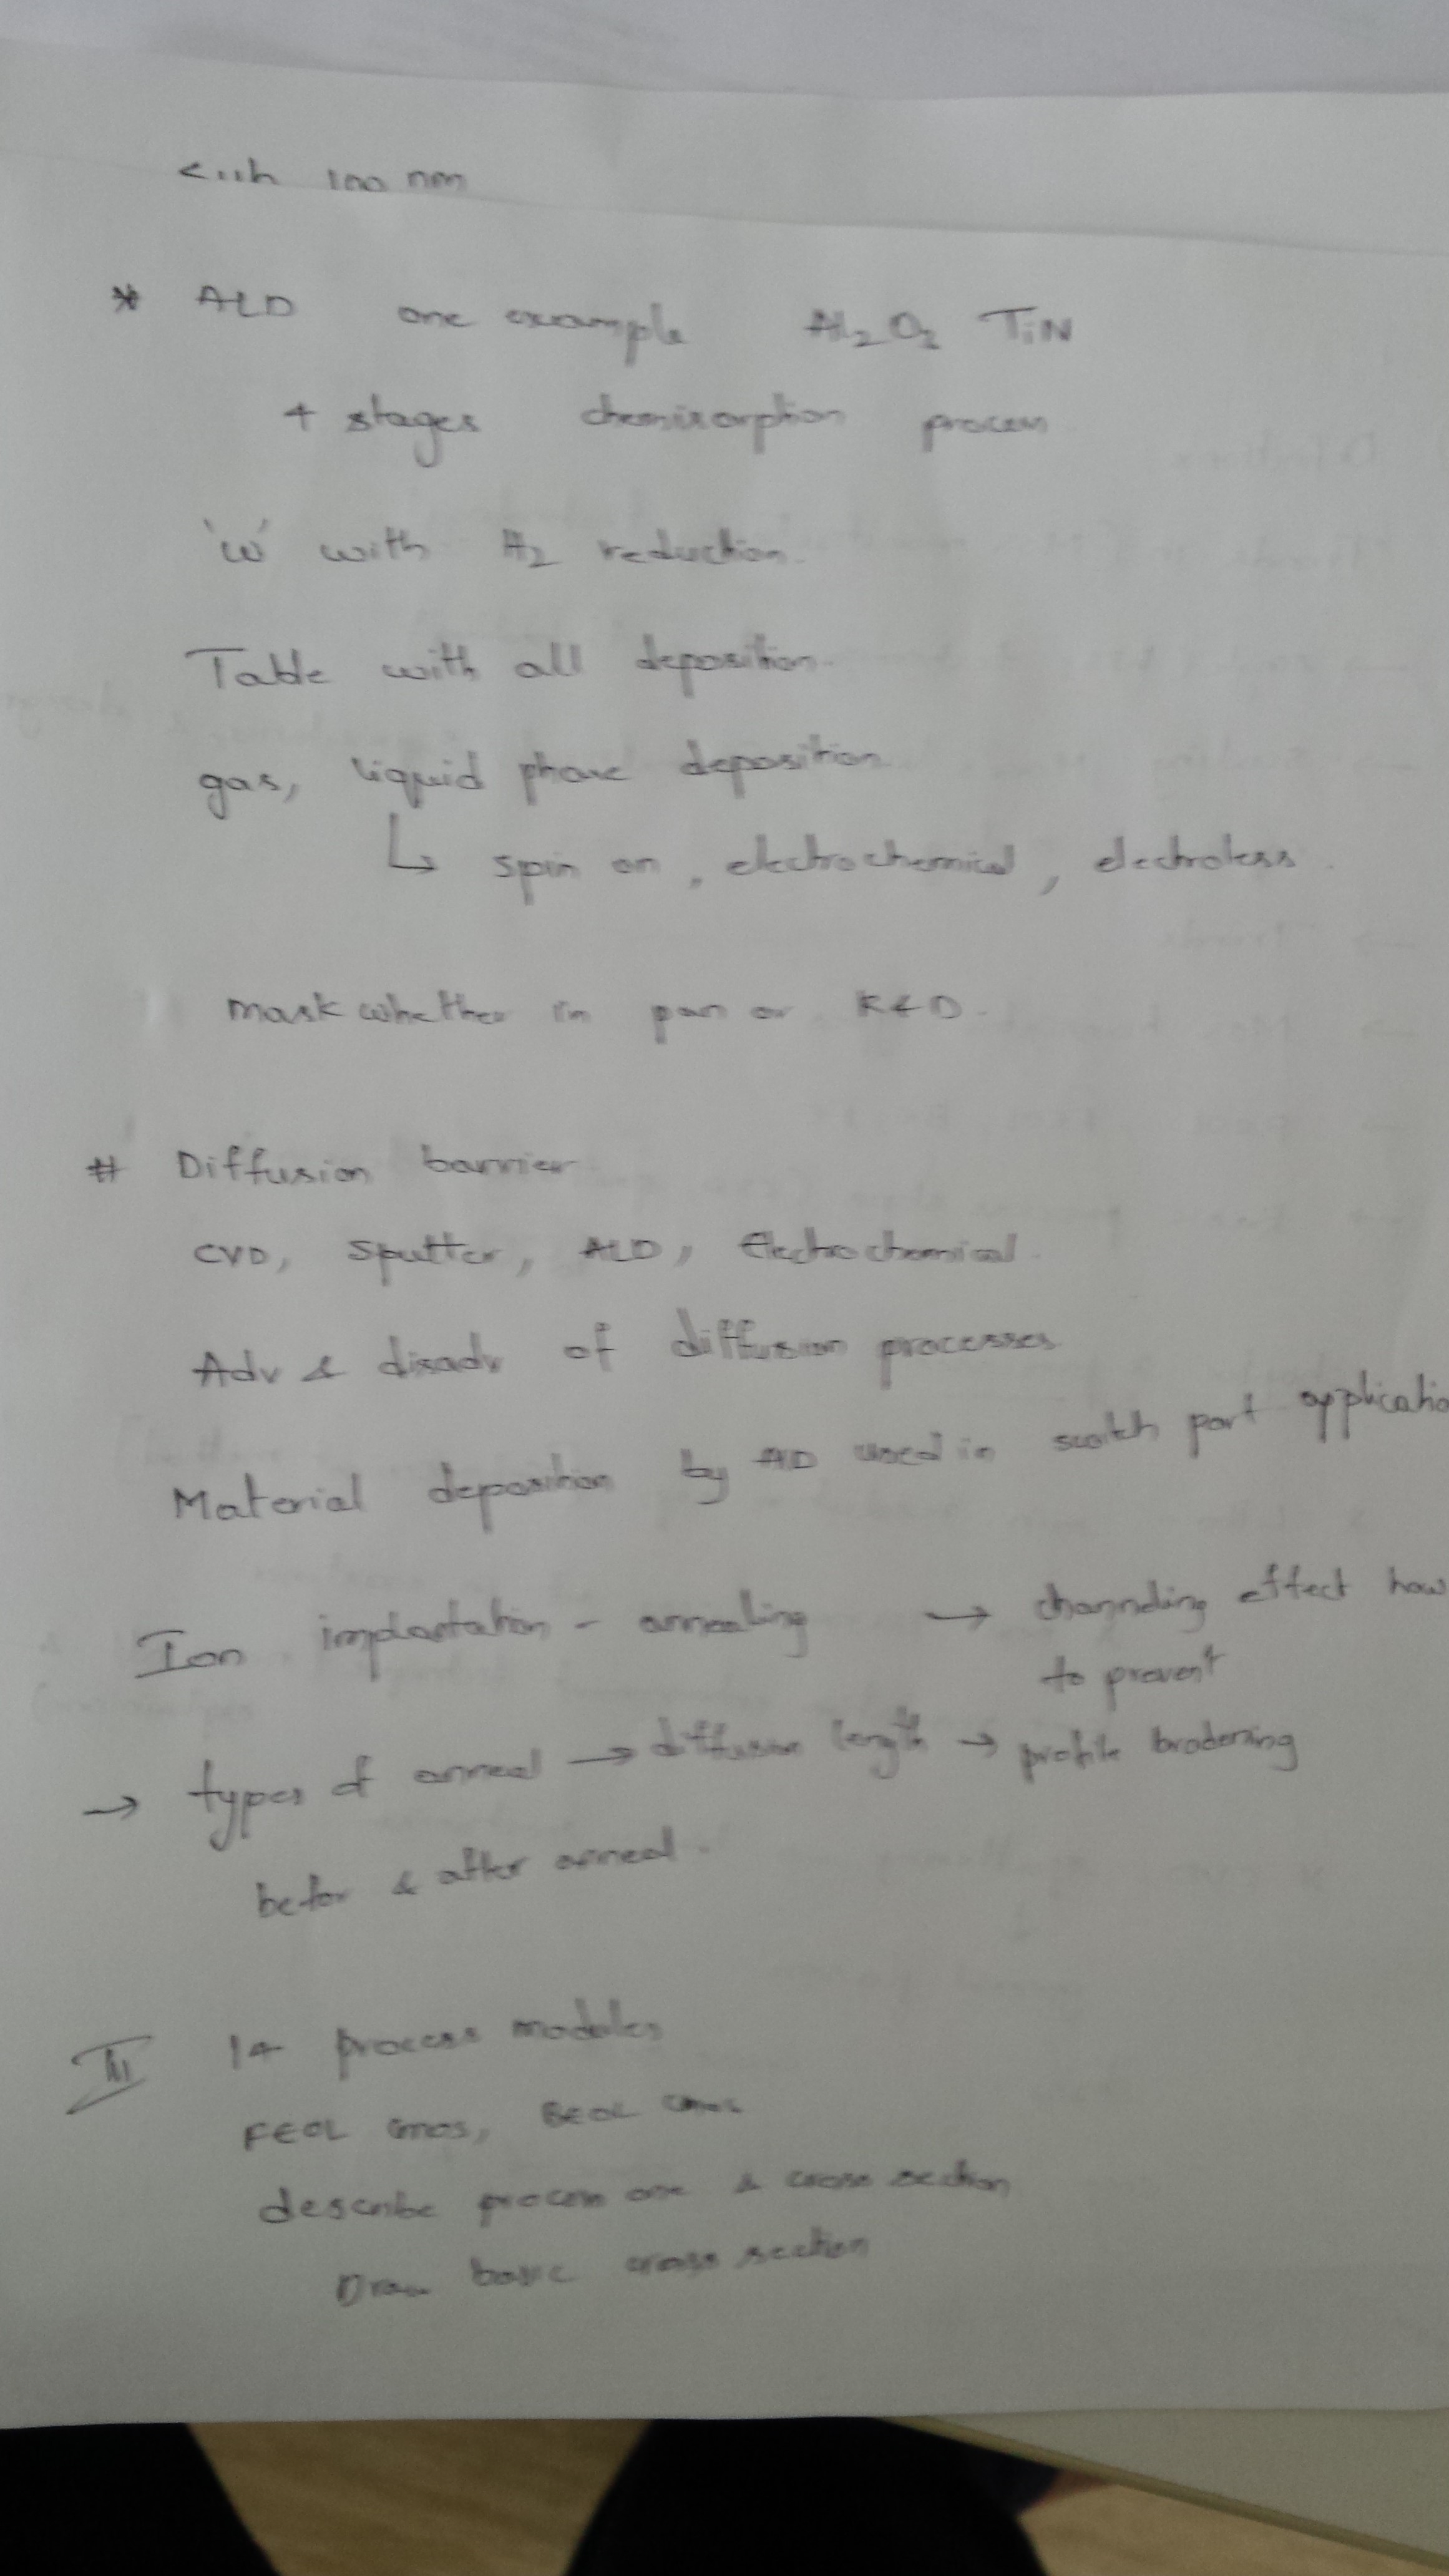 100 nm
* ALD one example Al2O3 TiN
4 stages chemisorption process
'W' with H2 reduction.
Table with all deposition.
gas, liquid phase deposition
↳ spin on, electrochemical, electroless.
mask whether in or R&D.
# Diffusion barrier
CVD, Sputter, ALD, Electrochemical.
Adv & disadv of diffusion processes
Material deposition by ALD used in part applicatio
Ion implantation - annealing → channeling effect how
to prevent
→ types of anneal → diffusion length → profile brodening
befor & after anneal.
III 14 process modules
FEOL cmos, BEOL cmos
describe process one & cross section
Draw basic cross section